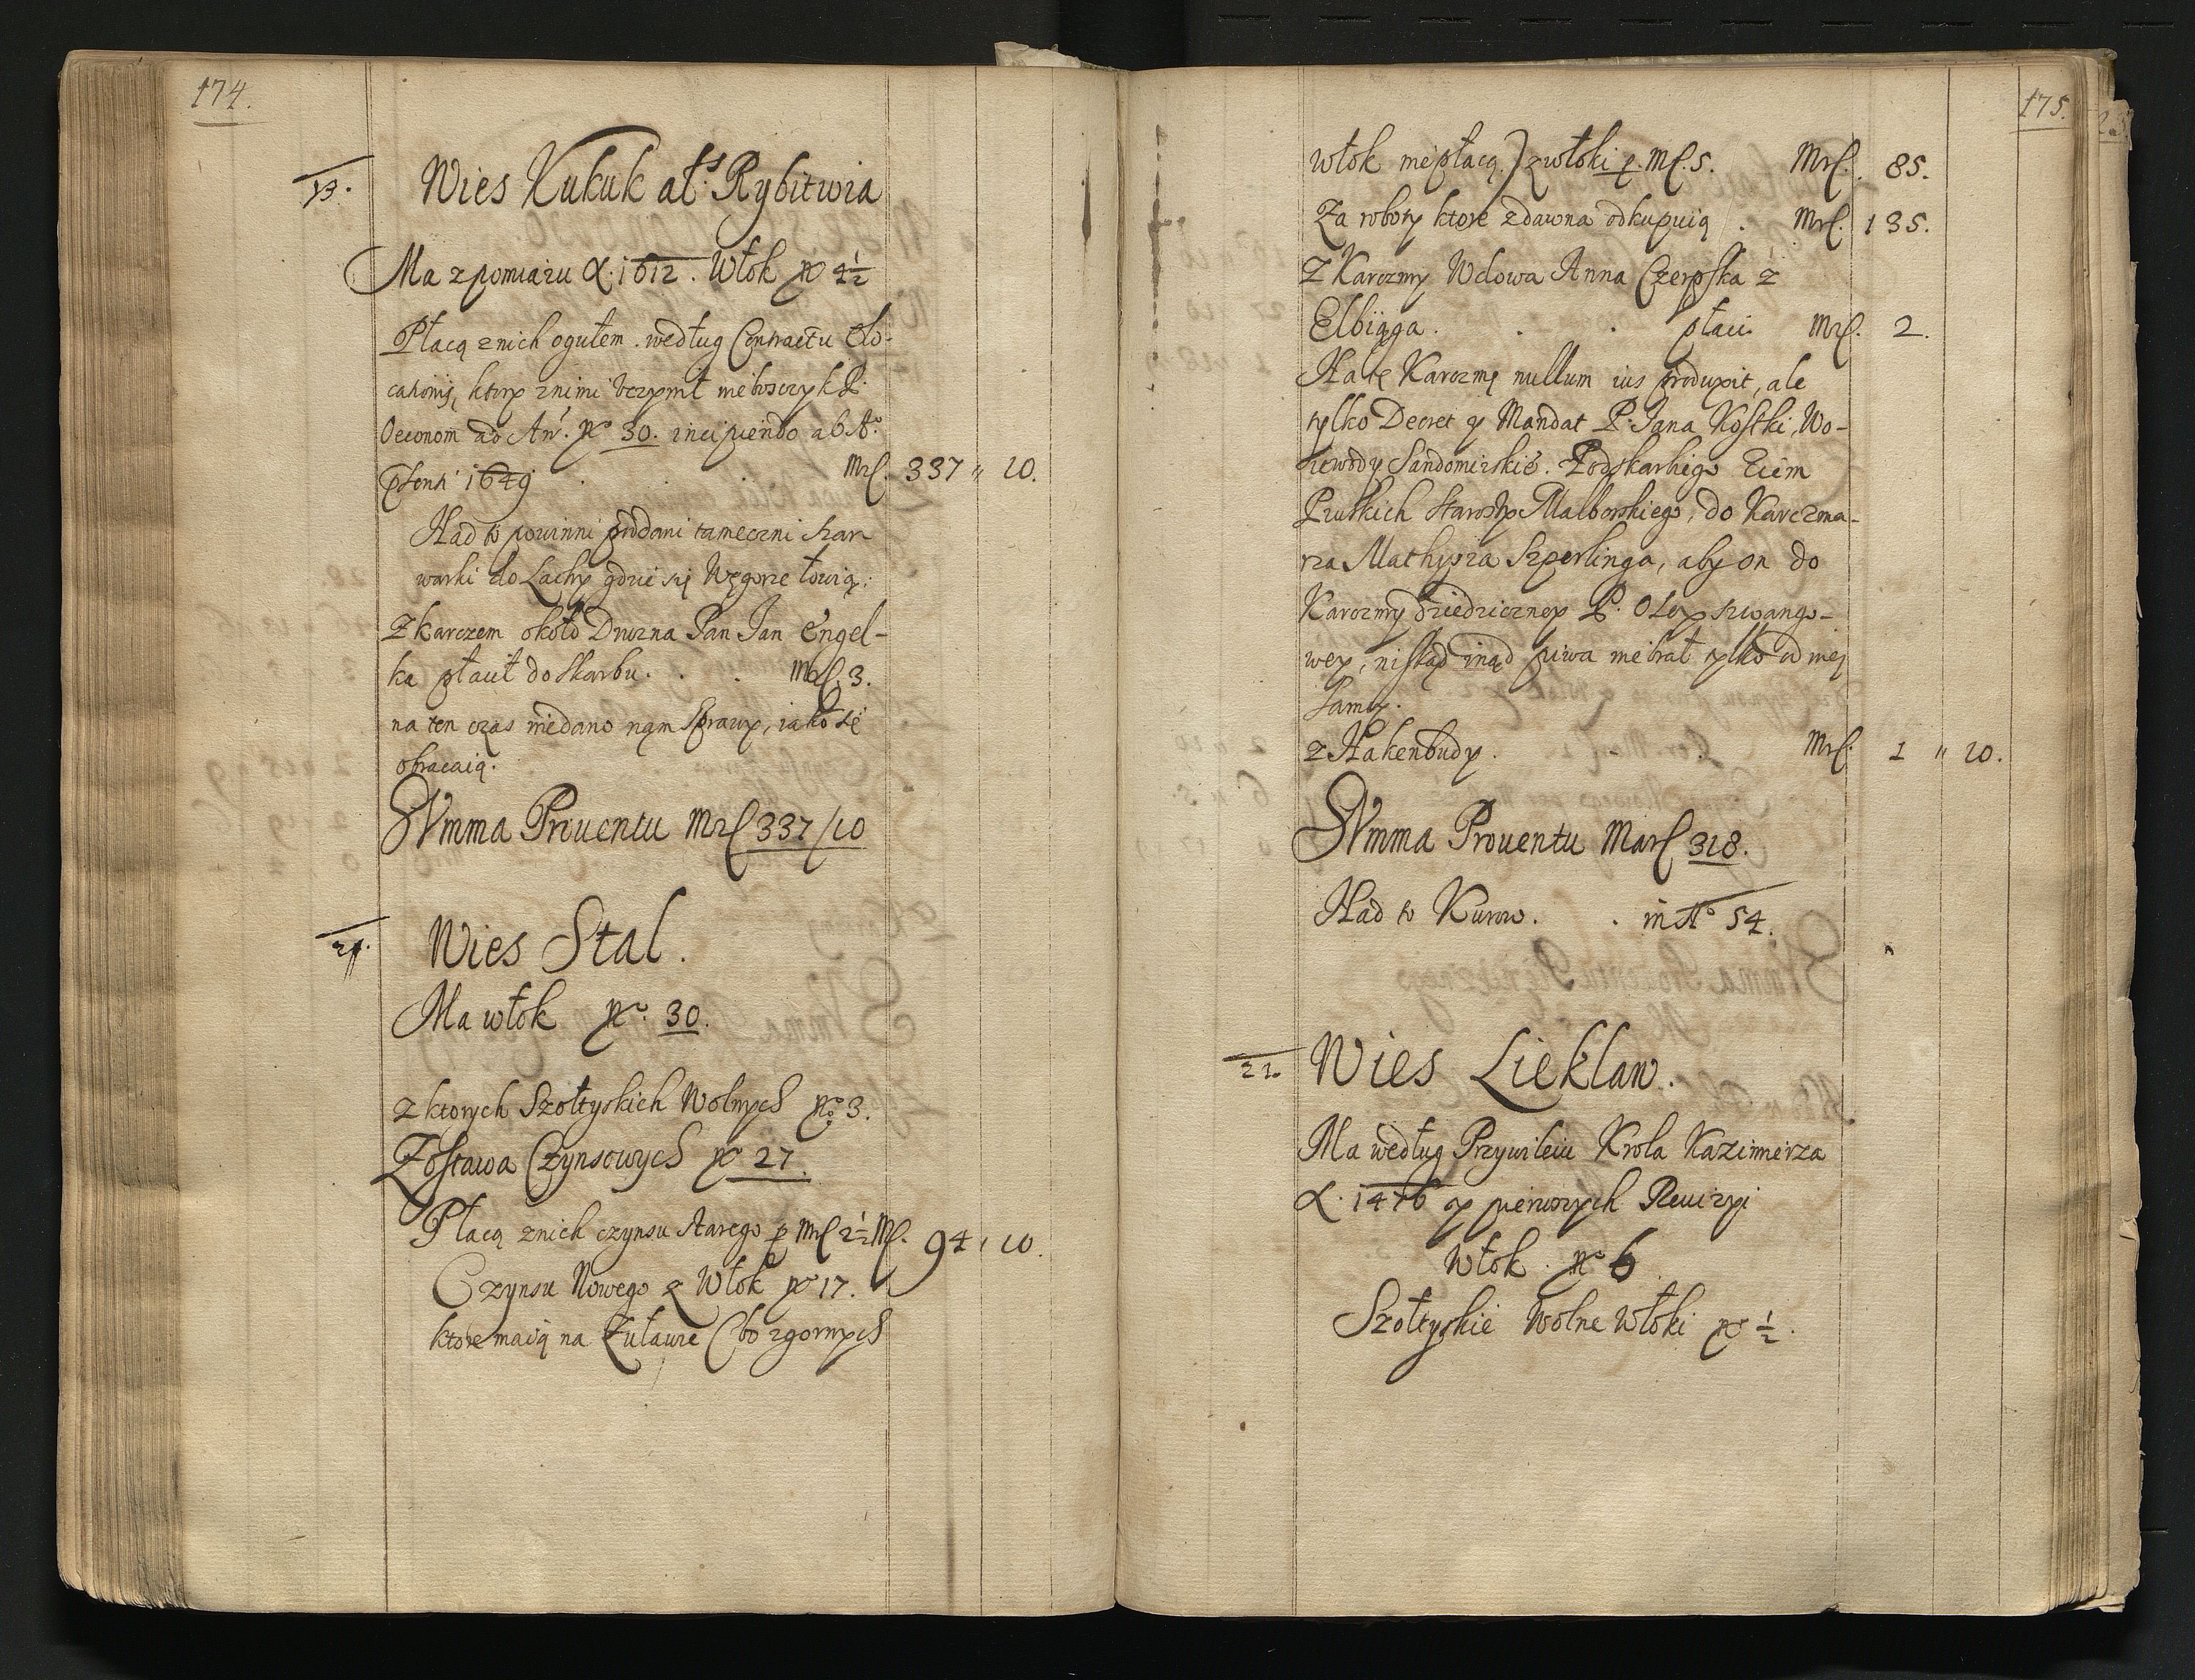 174.
Wies Kukuk als Rybitwia
Ma z pomiaru A. 1612. Włok No 4½
Płacą znich ogułem. według Contractu Elo-
cationis, ktory znimi uczynił nieboszczyk P.
Oeconom ad An. No 30. incipiendo ab Ao
pśenti 1649 . . . Mrſ. 337 " 10.
Nad to powinni poddani tameczni szar
warki do Lachy gdzie się Węgorze łowią.
Z karczem około Druzna Pan Jan Engel-
ka płacił do skarbu. . . Mrſ. 3.
na ten czas niedano nąm sprawy, iako się
obracaią.
Summa Prouentu Mrſ 337/10
Wies Stal.
Ma włok No 30.
z ktorych Szołtyskich Wolnych No 3.
Zostawa Czynsowych No 27.
Płacą znich czynsu starego p Mrſ 2½ Mſ. 94 " 10.
Czynsu Nowego z Włok No 17.
ktore maią na Żuławie (bo zgornych
175.
włok niepłacą.) zwłoki p. Mſ. 5. Mrſ. 85.
Za roboty ktore zdawna odkupuią . Mrſ. 135.
Z Karczmy Wdowa Anna Czerpska z
Elbiąga. . . płaci Mrſ. 2.
Na tę Karczmę nullum ius produxit, ale
tylko Decret y Mandat P. Jana Kostki, Wo-
iewody Sandomirskie. Podskarbiego Ziem
Pruskich Starosty Malborskiego, do Karczma-
rza Mathysza Szperlinga, aby on do
Karczmy dziedziczney P. Oley szwango-
wey, niskąd inąd piwa niebrał tylko od niej
samey.
z Hakenbudy. . Mrſ. 1 " 10.
Summa Prouentu Marſ 318.
Nad to Kurow. . in No 54.
22. Wies Lieklaw.
Ma według Przywileiu Krola Kazimierza
A. 1476 y pierwszych Reuizyi
Włok. No 6
Szołtyskie Wolne Włoki No ½.